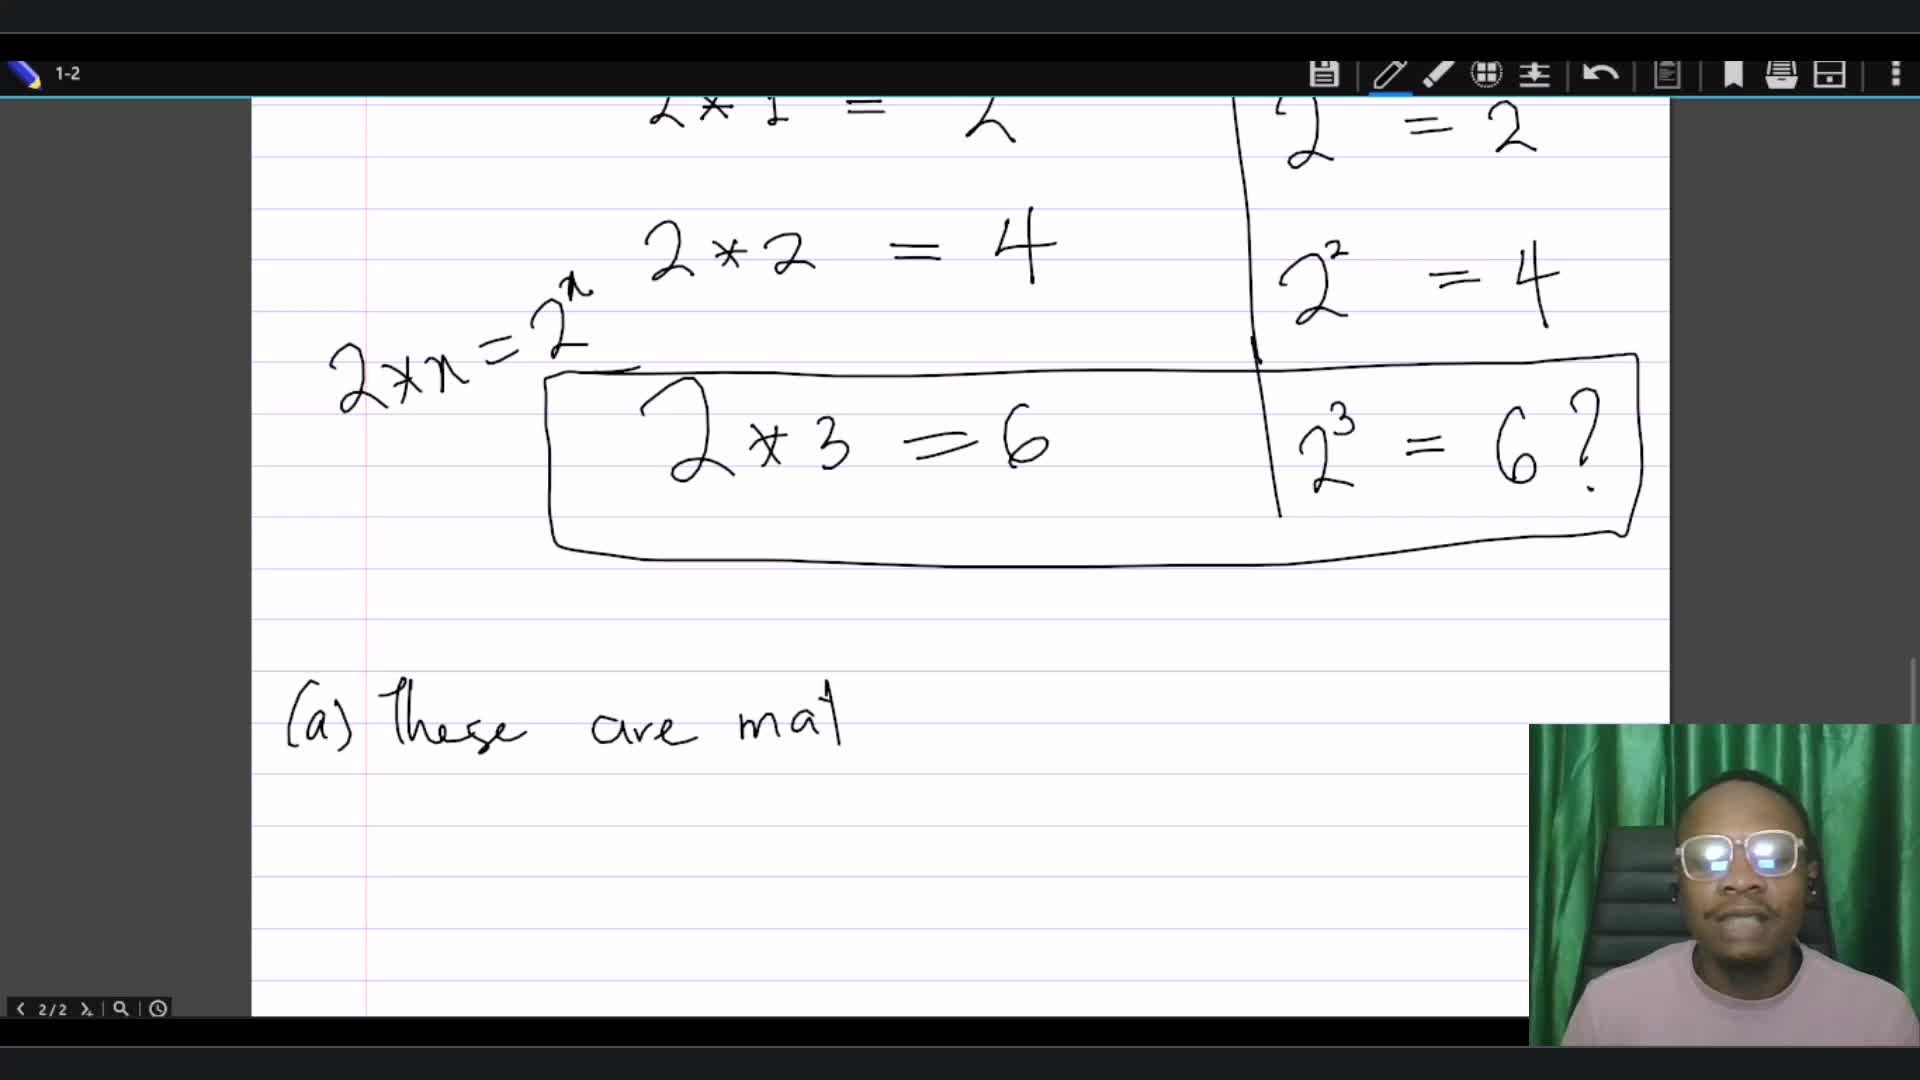 1-2
2 * 1 = 2
2 = 2
2 * 2 = 4
2² = 4
2 * x = 2ˣ
2 * 3 = 6
2³ = 6 ?
(a) These are mat
2/2